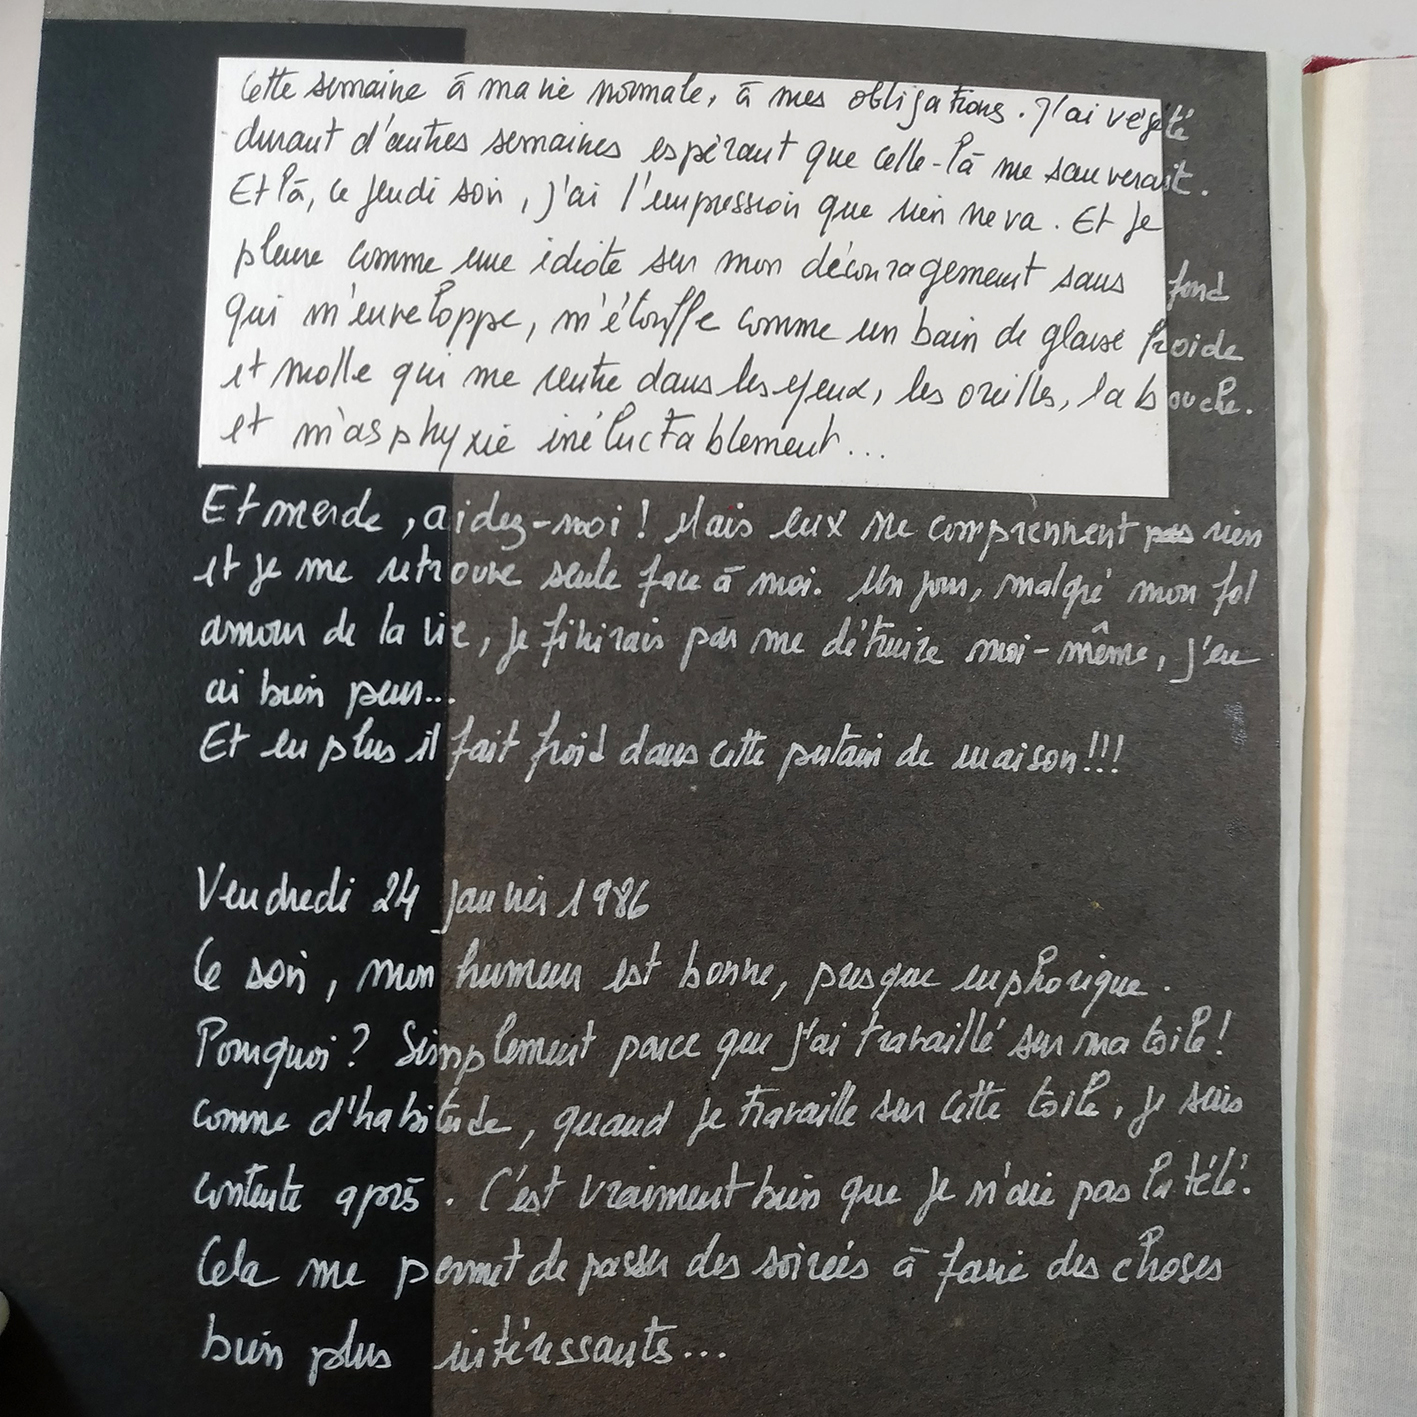 cette semaine à ma vie normale, à mes obligations. J'ai végété
durant d'autres semaines espérant que celle-là me sauverait.
Et là, ce jeudi soir, j'ai l'impression que rien ne va. Et je
pleure comme une idiote sur mon découragement sans fond
qui m'enveloppe, m'étouffe comme un bain de glaise froide
et molle qui me rentre dans les yeux, les oreilles, la bouche.
et m'asphyxie inéluctablement...
Et merde, aidez-moi ! Mais eux ne comprennent pas rien
et je me retrouve seule face à moi. Un jour, malgré mon fol
amour de la vie, je finirais par me détruire moi-même, j'en
ai bien peur...
Et en plus il fait froid dans cette putain de maison!!!
Vendredi 24 janvier 1986
Ce soir, mon humeur est bonne, presque euphorique.
Pourquoi ? Simplement parce que j'ai travaillé sur ma toile !
comme d'habitude, quand je travaille sur cette toile, je suis
contente après. C'est vraiment bien que je n'aie pas la télé.
Cela me permet de passer des soirées à faire des choses
bien plus intéressants...